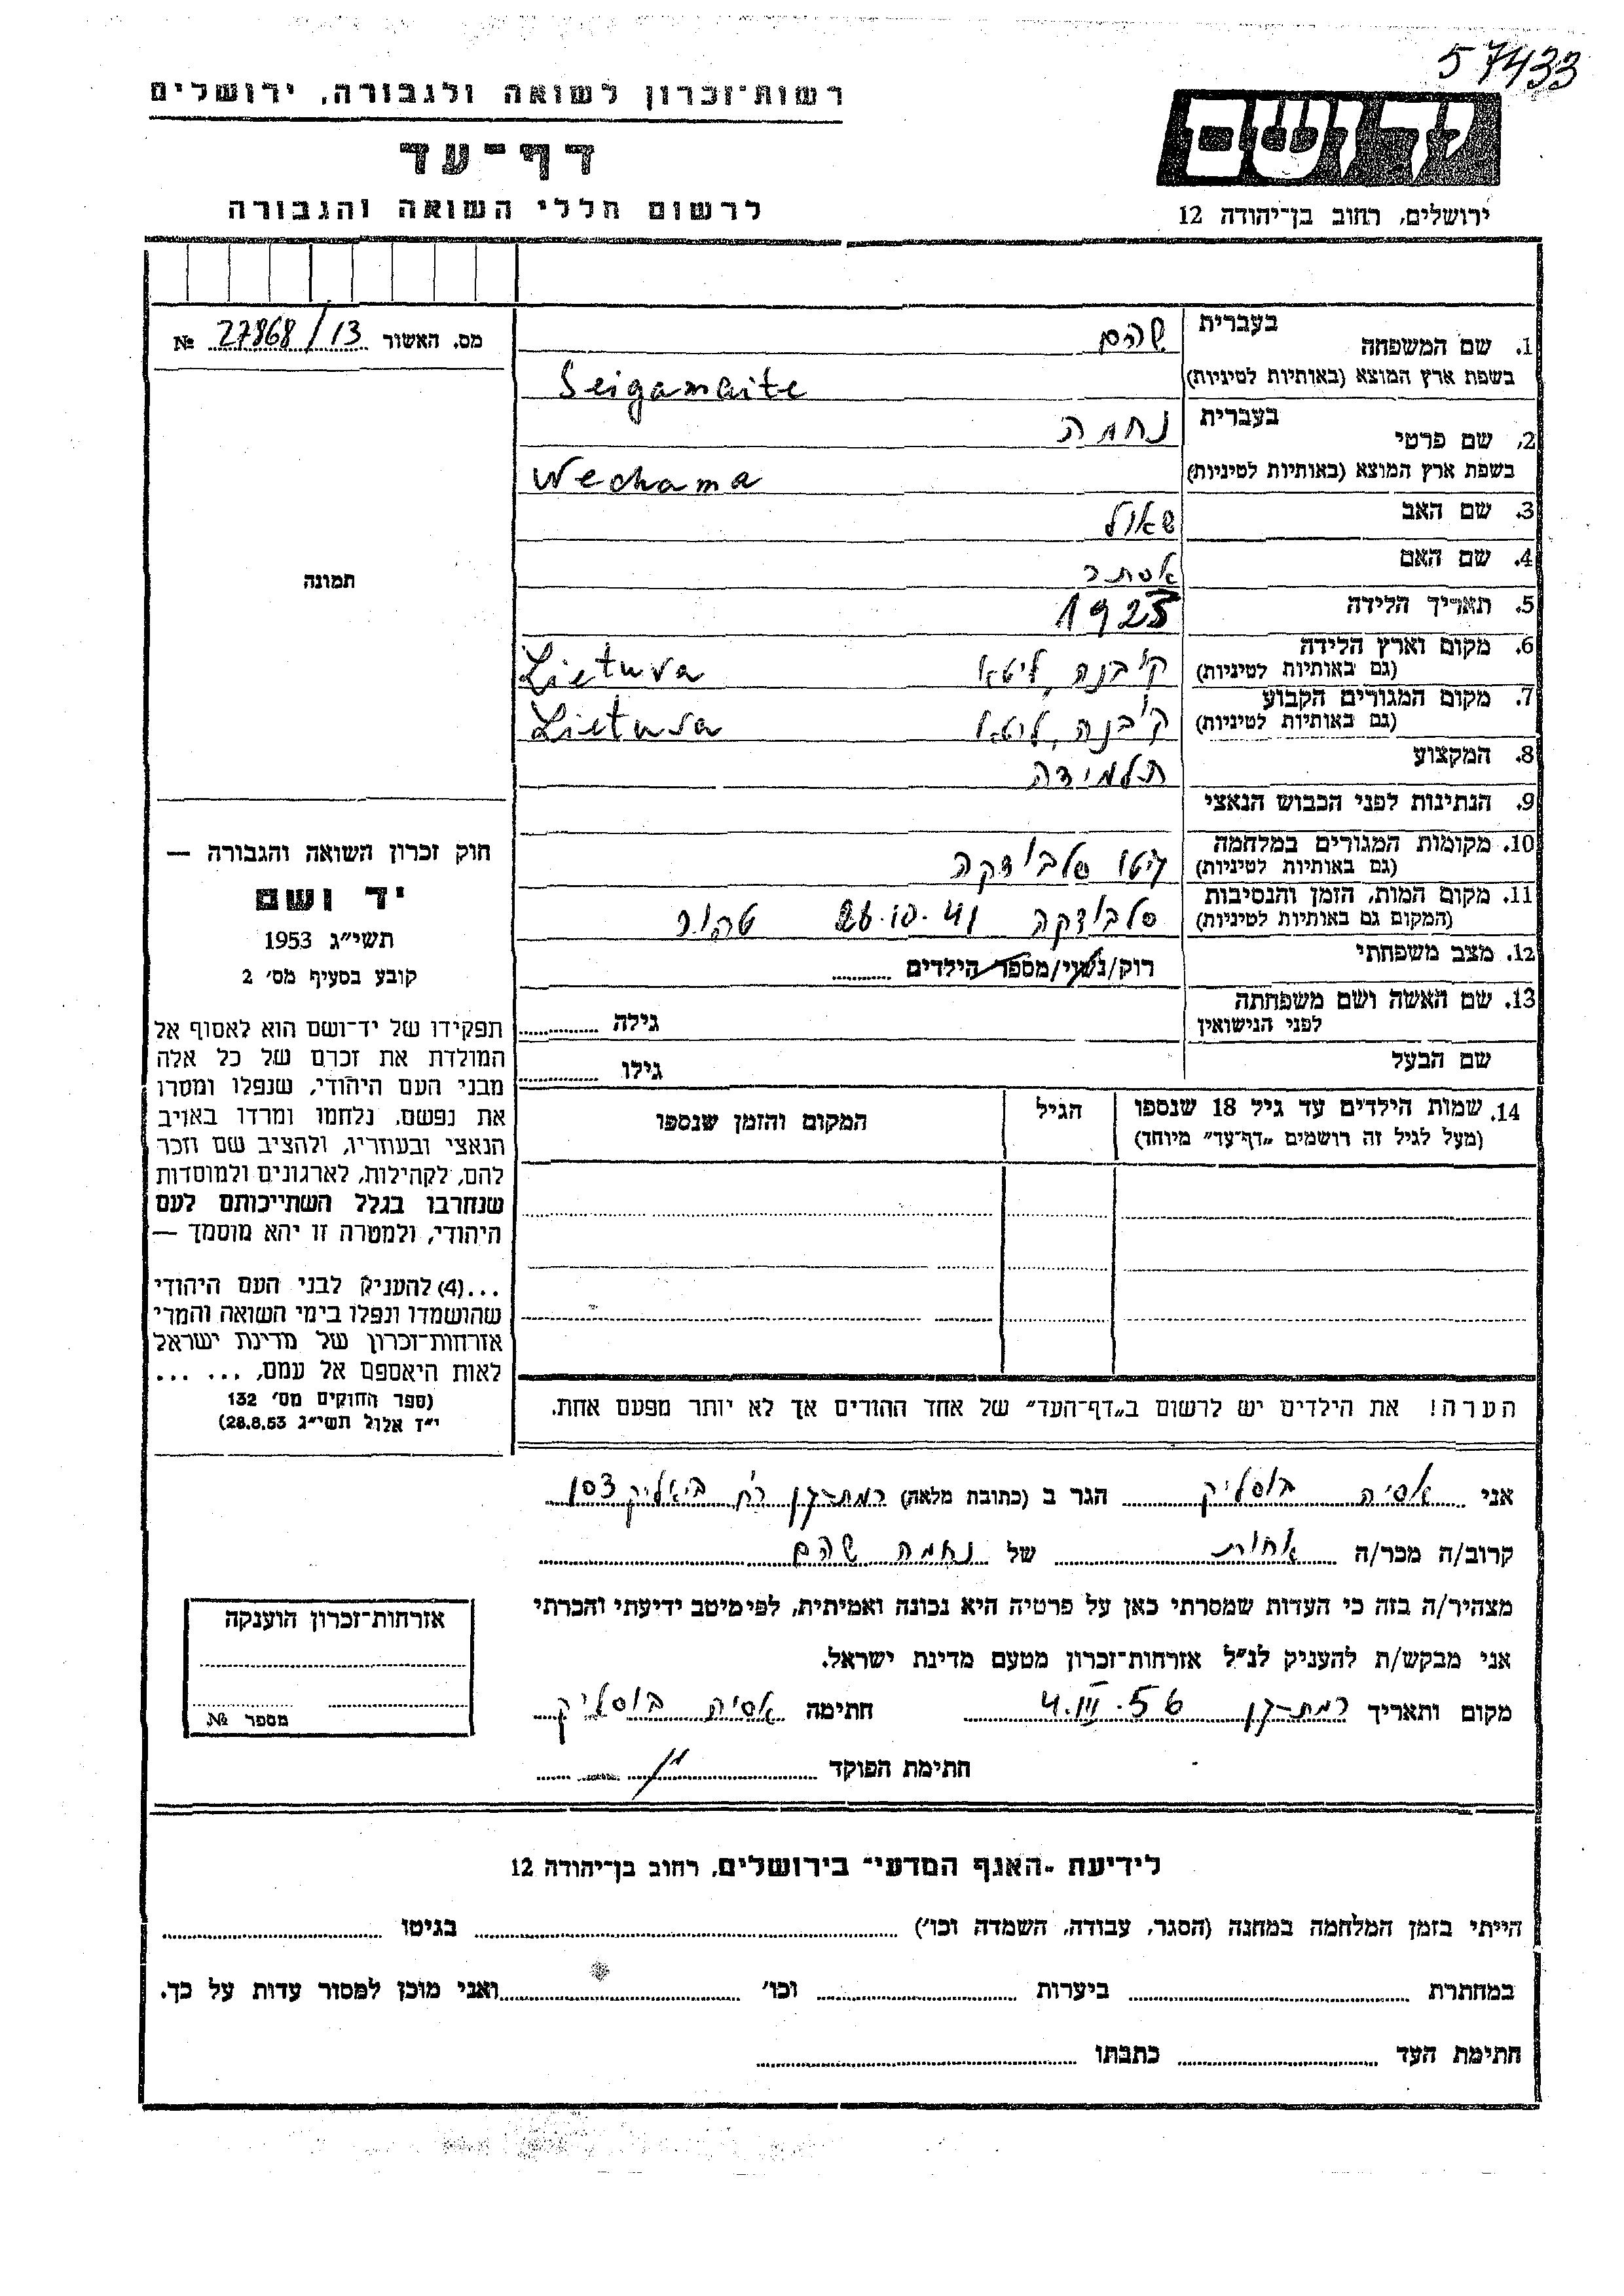 57433
רשות־זכרון לשואה ולגבורה, ירושלים
דף־עד
לרשום חללי השואה והגבורה
ידושם
ירושלים, רחוב בן־יהודה 12
מס. האשור 27868/13 №
1. שם המשפחה בעברית שהם
בשפת ארץ המוצא (באותיות לטיניות) Seigamaite
2. שם פרטי בעברית נחמה
בשפת ארץ המוצא (באותיות לטיניות) Nechama
3. שם האב שאול
4. שם האם אסתר
5. תאריך הלידה 1925
6. מקום וארץ הלידה קובנה, ליטא Lietuva
(גם באותיות לטיניות)
7. מקום המגורים הקבוע קובנה, ליטא Lietuva
(גם באותיות לטיניות)
8. המקצוע תלמידה
9. הנתינות לפני הכבוש הנאצי
10. מקומות המגורים במלחמה גטו סלבודקה
(גם באותיות לטיניות)
11. מקום המות, הזמן והנסיבות סלבודקה 28.10.41
(המקום גם באותיות לטיניות)
12. מצב משפחתי רוק/נשוי/מספר הילדים
13. שם האשה ושם משפחתה
לפני הנישואין גילה
שם הבעל גילו
14. שמות הילדים עד גיל 18 שנספו הגיל המקום והזמן שנספו
(מעל לגיל זה רושמים "דף־עד" מיוחד)
הערה! את הילדים יש לרשום ב"דף־העד" של אחד ההורים אך לא יותר מפעם אחת.
תמונה
חוק זכרון השואה והגבורה —
יד ושם
תשי"ג 1953
קובע בסעיף מס׳ 2
תפקידו של יד־ושם הוא לאסוף אל
המולדת את זכרם של כל אלה
מבני העם היהודי, שנפלו ומסרו
את נפשם, נלחמו ומרדו באויב
הנאצי ובעוזריו, ולהציב שם וזכר
להם, לקהילות, לארגונים ולמוסדות
שנחרבו בגלל השתייכותם לעם
היהודי, ולמטרה זו יהא מוסמך —
...(4) להעניק לבני העם היהודי
שהושמדו ונפלו בימי השואה והמרי
אזרחות־זכרון של מדינת ישראל
לאות היאספם אל עמם, ... ...
(ספר החוקים מס׳ 132
י"ז אלול תשי"ג 28.8.53)
אני אסיה בוסליק הגר ב (כתובת מלאה) רמת־גן רח׳ ביאליק 103
קרוב/ה מכר/ה אחות של נחמה שהם
מצהיר/ה בזה כי העדות שמסרתי כאן על פרטיה היא נכונה ואמיתית, לפי מיטב ידיעתי והכרתי
אני מבקש/ת להעניק לנ"ל אזרחות־זכרון מטעם מדינת ישראל.
מקום ותאריך רמת־גן 4.III.56 חתימה אסיה בוסליק
חתימת הפוקד
אזרחות־זכרון הוענקה
מספר №
לידיעת ־האגף המדעי־ בירושלים, רחוב בן־יהודה 12
הייתי בזמן המלחמה במחנה (הסגר, עבודה, השמדה וכו׳) בגיטו
במחתרת ביערות וכו׳ ואני מוכן למסור עדות על כך.
חתימת העד כתבתו